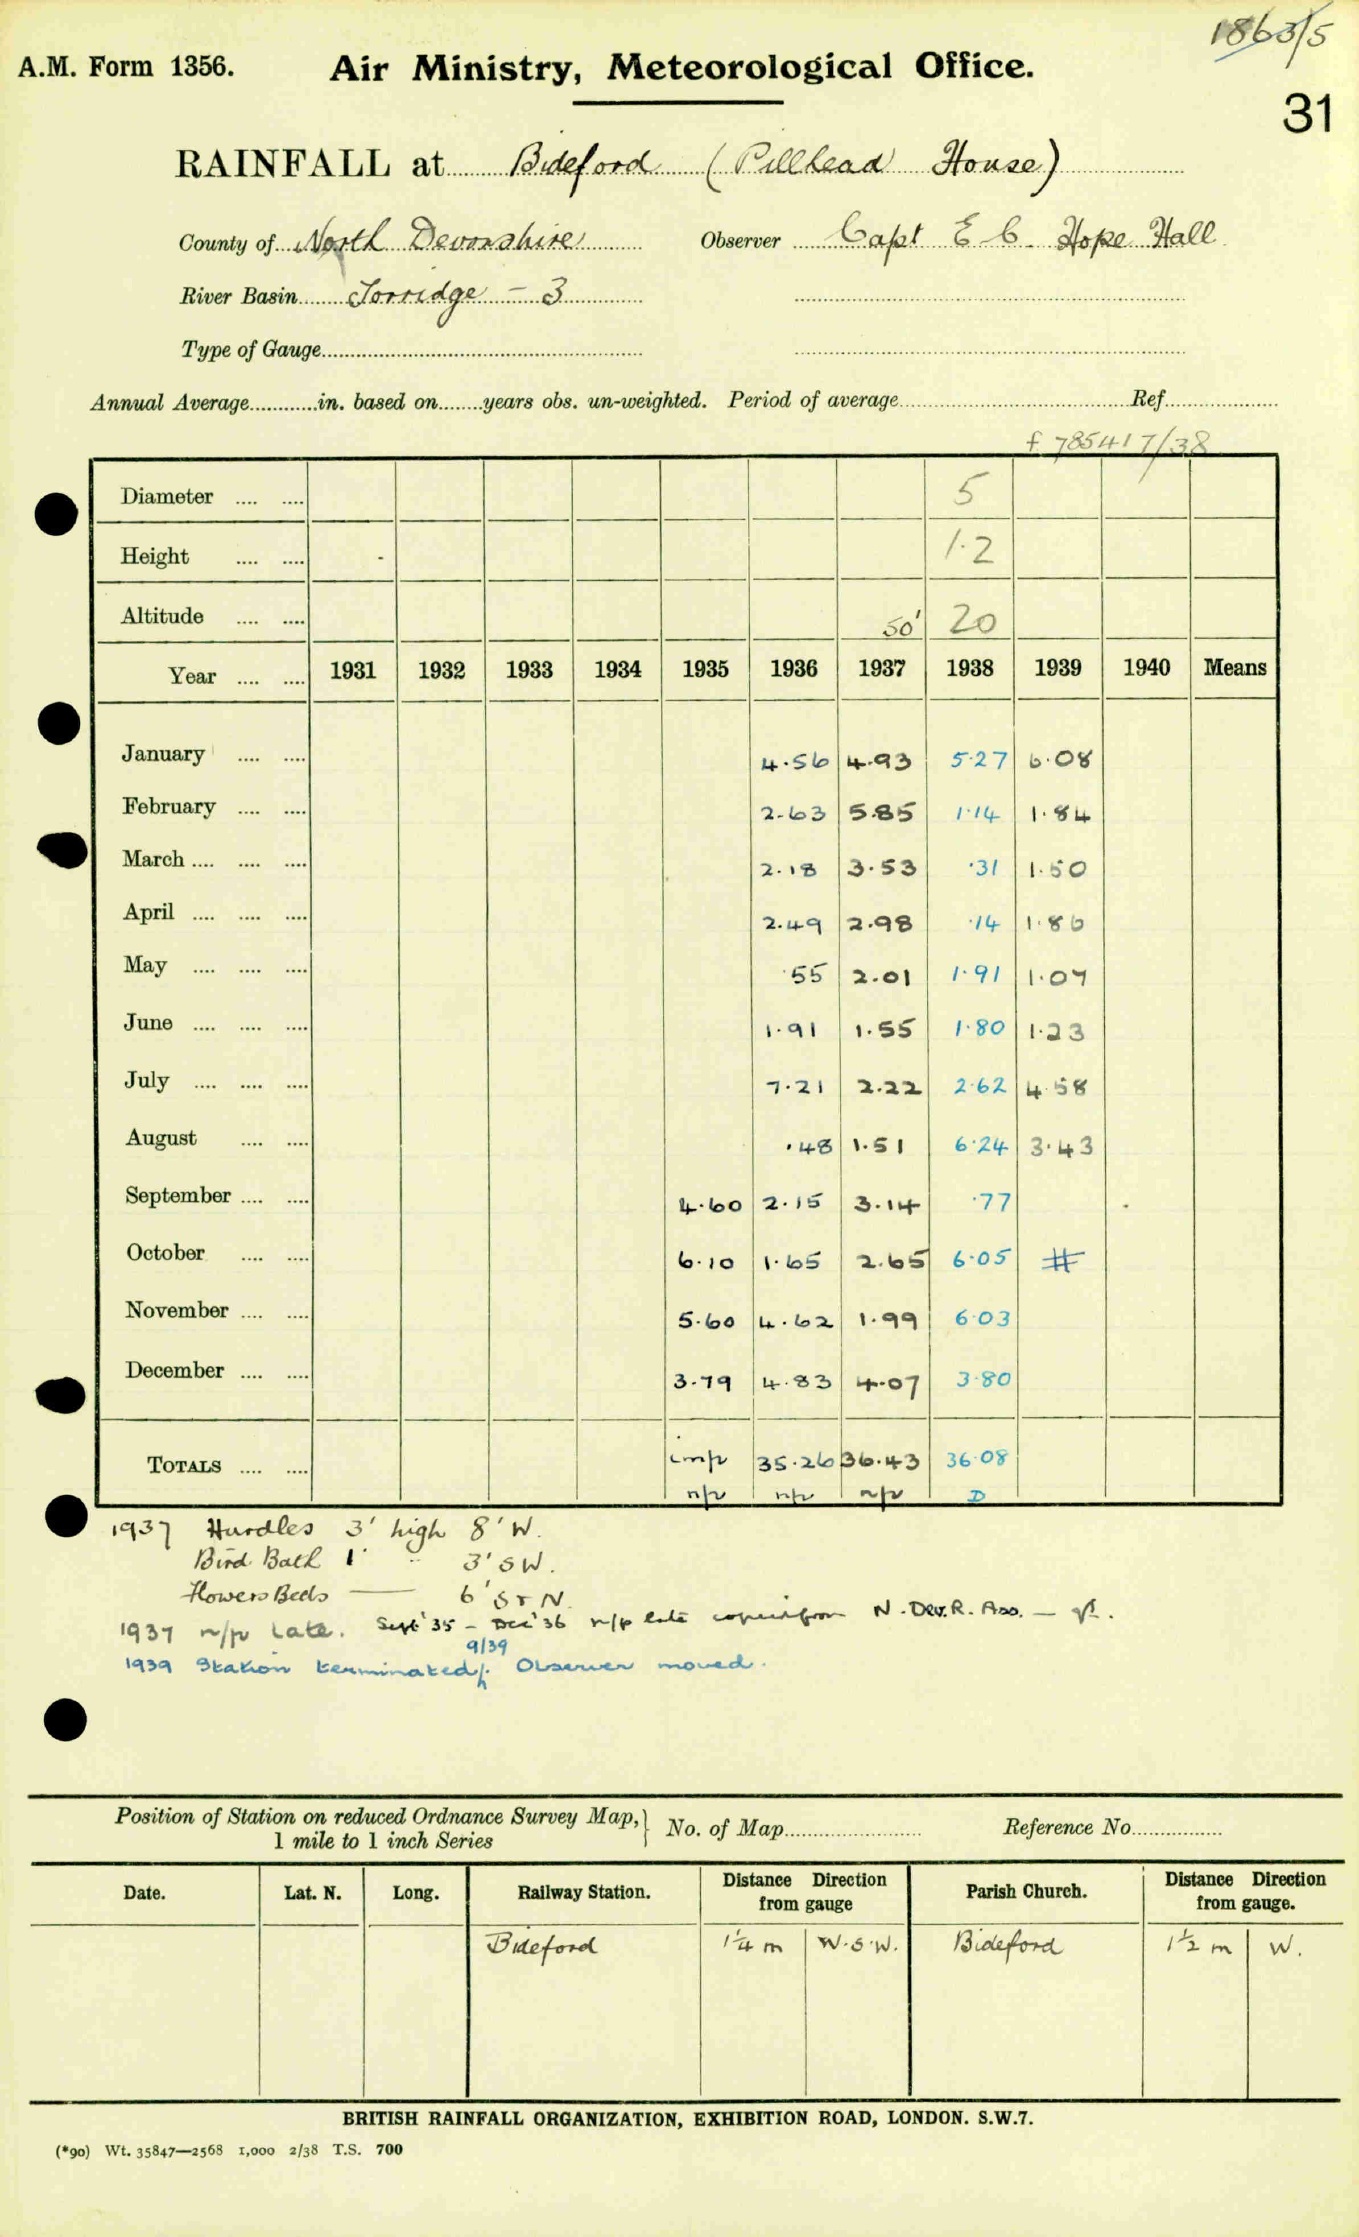 1863/5
A.M. Form 1356. Air Ministry, Meteorological Office.
31
RAINFALL at Bideford (Pillhead House)
County of North Devonshire Observer Capt E C. Hope Hall
River Basin Torridge - 3
Type of Gauge
Annual Average in. based on years obs. un-weighted. Period of average Ref
f 785417/38
Diameter .... .... 5
Height .... .... 1.2
Altitude .... .... 50' 20
Year .... .... 1931 1932 1933 1934 1935 1936 1937 1938 1939 1940 Means
January .... .... 4.56 4.93 5.27 6.08
February .... .... 2.63 5.85 1.14 1.84
March .... .... .... 2.18 3.53 .31 1.50
April .... .... .... 2.49 2.98 .14 1.86
May .... .... .... .55 2.01 1.91 1.07
June .... .... .... 1.91 1.55 1.80 1.23
July .... .... .... 7.21 2.22 2.62 4.58
August .... .... .48 1.51 6.24 3.43
September .... .... 4.60 2.15 3.14 .77
October .... .... 6.10 1.65 2.65 6.05 #
November .... .... 5.60 4.62 1.99 6.03
December .... .... 3.79 4.83 4.07 3.80
TOTALS .... .... imp 35.26 36.43 36.08
n/r n/r n/r D
1937 Hurdles 3' high 8' W.
Bird Bath 1' " 3' SW.
Flowers Beds — 6' S & N.
1937 n/r Late. Sept '35 - Dec '36 n/r late copied from N. Dev. R. Ass. —
9/39
1939 Station terminated. Observer moved.
Position of Station on reduced Ordnance Survey Map,
1 mile to 1 inch Series
No. of Map Reference No
Date. Lat. N. Long. Railway Station. Distance Direction from gauge Parish Church. Distance Direction from gauge.
Bideford 1¼ m W.S.W. Bideford 1½ m W.
BRITISH RAINFALL ORGANIZATION, EXHIBITION ROAD, LONDON. S.W.7.
(*90) Wt. 35847—2568 1,000 2/38 T.S. 700